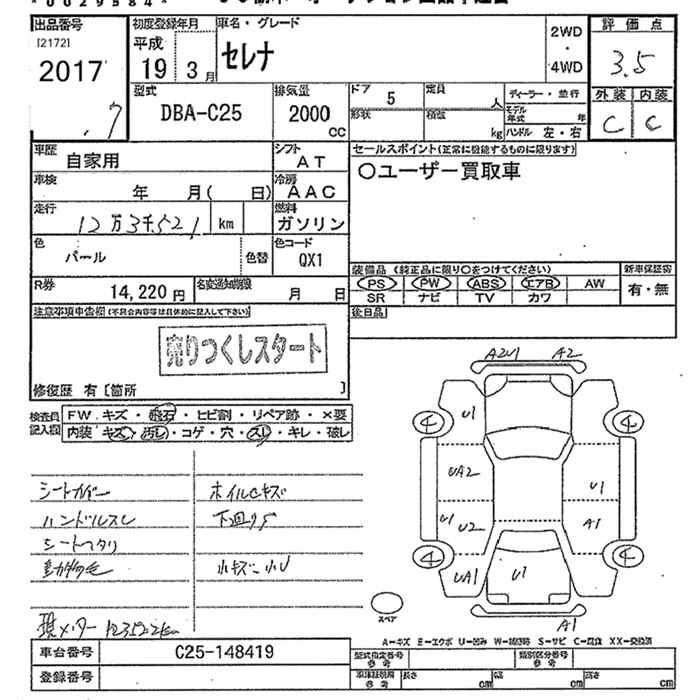 *0029584*
出品番号
[2172]
2017
初度登録年月
平成
19 3月
車名・グレード
セレナ
2WD
・
4WD
評価点
3.5
外装 内装
C C
型式
DBA-C25
排気量
2000
CC
ドア
5
定員
人
形状
積載
kg
ディーラー・並行
モデル年式 年
ハンドル 左・右
車歴
自家用
シフト
AT
車検
年 月( 日)
冷房
AAC
走行
12万3千521 km
燃料
ガソリン
色
パール
色替
色コード
QX1
R券
14,220円
名変通知期限
月 日
セールスポイント(正常に機能するものに限ります)
〇ユーザー買取車
装備品 (純正品に限り〇をつけてください)
PS PW ABS エアB AW
SR ナビ TV カワ
新車保証書
有・無
後日品
注意事項申告欄(不具合内容等は具体的に記入して下さい)
売りつくしスタート
修復歴 有[箇所 ]
検査員記入欄
FW キズ・飛石・ヒビ割・リペア跡・×要
内装 キズ・汚れ・コゲ・穴・スレ・キレ・破レ
シートカバー
ハンドルスレ
シートヘタリ
動物毛
ホイルCキズ
下回りS
小キズ小U
現メーター123522km
A2U1 A2
U1
4 4
UA2
U1
U1 U2
A1
4 4
UA1
U1
A1
スペア
A-キズ E-エクボ U-凹み W-補修跡 S-サビ C-腐食 XX-交換済
車台番号
C25-148419
登録番号
型式指定番号
参考
類別区分番号
参考
車検証期限
参考
長さ cm
幅 cm
高さ cm